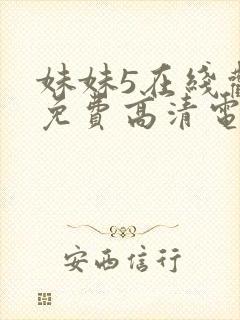 妹妹5在线觀
免費高清電
安西信行